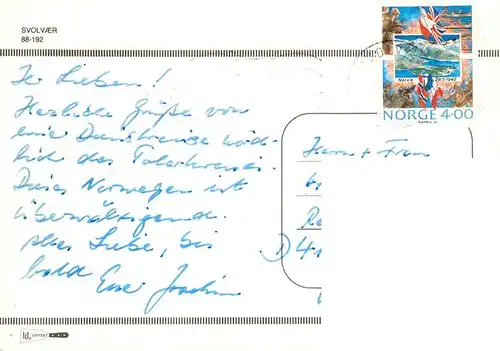 SVOLVÆR
88-192
Ihr Lieben!
Herzliche Grüße von
einer Dienstreise nörd-
lich des Polarkreises.
Dieses Norwegen ist
überwältigend.
Alles Liebe, bis
bald Euer Joachim
Narvik 28·5·1940
NORGE 4·00
Herrn + Frau
D 4